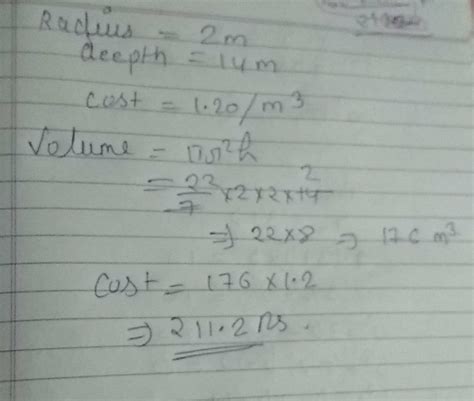 Radius = 2m
deepth = 14m
cost = 1.20/m³
Volume = πr²h
= 22/7 ×2×2×14 2
⇒ 22×8 ⇒ 176 m³
Cost = 176 ×1.2
⇒ 211.2 Rs.